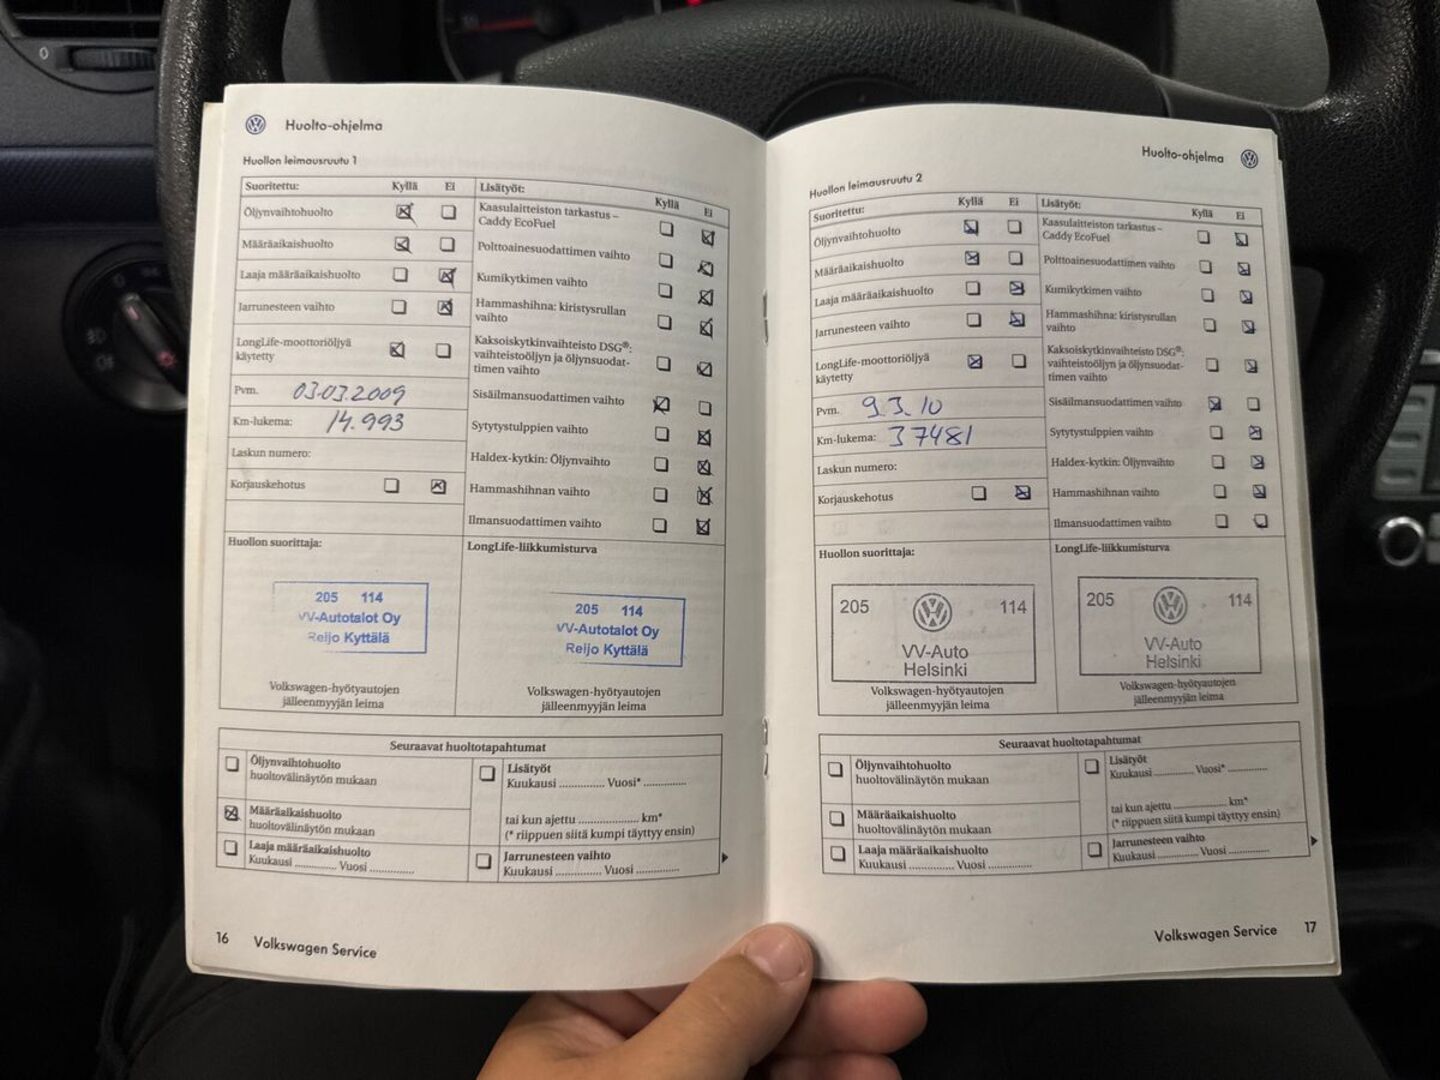 Huolto-ohjelma
Huollon leimausruutu 1
Suoritettu: Kyllä Ei
Öljynvaihtohuolto
Määräaikaishuolto
Laaja määräaikaishuolto
Jarrunesteen vaihto
LongLife-moottoriöljyä
käytetty
Pvm. 03.03.2009
Km-lukema: 14.993
Laskun numero:
Korjauskehotus
Lisätyöt: Kyllä Ei
Kaasulaitteiston tarkastus –
Caddy EcoFuel
Polttoainesuodattimen vaihto
Kumikytkimen vaihto
Hammashihna: kiristysrullan
vaihto
Kaksoiskytkinvaihteisto DSG®:
vaihteistoöljyn ja öljynsuodat-
timen vaihto
Sisäilmansuodattimen vaihto
Sytytystulppien vaihto
Haldex-kytkin: Öljynvaihto
Hammashihnan vaihto
Ilmansuodattimen vaihto
Huollon suorittaja:
205 114
VV-Autotalot Oy
Reijo Kyttälä
Volkswagen-hyötyautojen
jälleenmyyjän leima
LongLife-liikkumisturva
205 114
VV-Autotalot Oy
Reijo Kyttälä
Volkswagen-hyötyautojen
jälleenmyyjän leima
Seuraavat huoltotapahtumat
Öljynvaihtohuolto
huoltovälinäytön mukaan
Määräaikaishuolto
huoltovälinäytön mukaan
Laaja määräaikaishuolto
Kuukausi ............... Vuosi ...............
Lisätyöt
Kuukausi ............... Vuosi* ...............
tai kun ajettu .................... km*
(* riippuen siitä kumpi täyttyy ensin)
Jarrunesteen vaihto
Kuukausi ............... Vuosi ...............
16 Volkswagen Service
Huolto-ohjelma
Huollon leimausruutu 2
Suoritettu: Kyllä Ei
Öljynvaihtohuolto
Määräaikaishuolto
Laaja määräaikaishuolto
Jarrunesteen vaihto
LongLife-moottoriöljyä
käytetty
Pvm. 9.3.10
Km-lukema: 37481
Laskun numero:
Korjauskehotus
Lisätyöt: Kyllä Ei
Kaasulaitteiston tarkastus –
Caddy EcoFuel
Polttoainesuodattimen vaihto
Kumikytkimen vaihto
Hammashihna: kiristysrullan
vaihto
Kaksoiskytkinvaihteisto DSG®:
vaihteistoöljyn ja öljynsuodat-
timen vaihto
Sisäilmansuodattimen vaihto
Sytytystulppien vaihto
Haldex-kytkin: Öljynvaihto
Hammashihnan vaihto
Ilmansuodattimen vaihto
Huollon suorittaja:
205 114
VV-Auto
Helsinki
Volkswagen-hyötyautojen
jälleenmyyjän leima
LongLife-liikkumisturva
205 114
VV-Auto
Helsinki
Volkswagen-hyötyautojen
jälleenmyyjän leima
Seuraavat huoltotapahtumat
Öljynvaihtohuolto
huoltovälinäytön mukaan
Määräaikaishuolto
huoltovälinäytön mukaan
Laaja määräaikaishuolto
Kuukausi ............... Vuosi ...............
Lisätyöt
Kuukausi ............... Vuosi* ...............
tai kun ajettu .................... km*
(* riippuen siitä kumpi täyttyy ensin)
Jarrunesteen vaihto
Kuukausi ............... Vuosi ...............
Volkswagen Service 17
0